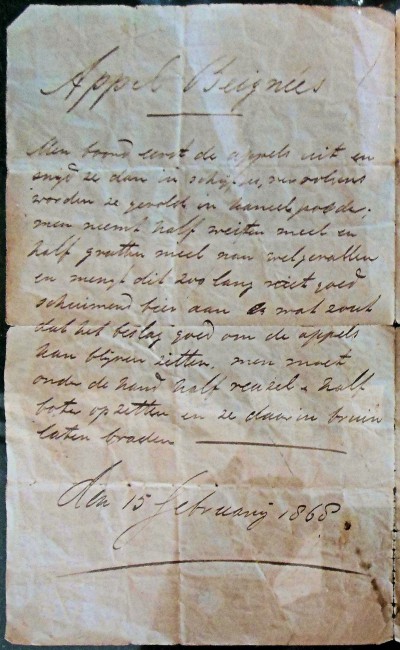 Appel Beignées
Men boord eerst de appels uit en
snijd ze dan in schijfjes, vervolgens
worden ze gerold in kaneelpoeder.
men neemt half weiten meel en
half grutten meel naar welgevallen
en mengt dit zoo lang met goed
schuimend bier aan en wat zout
dat het beslag goed om de appels
kan blijven zitten, men moet
onder de hand half reuzel & half
boter opzetten en ze daarin bruin
laten braden
den 15 februarij 1868